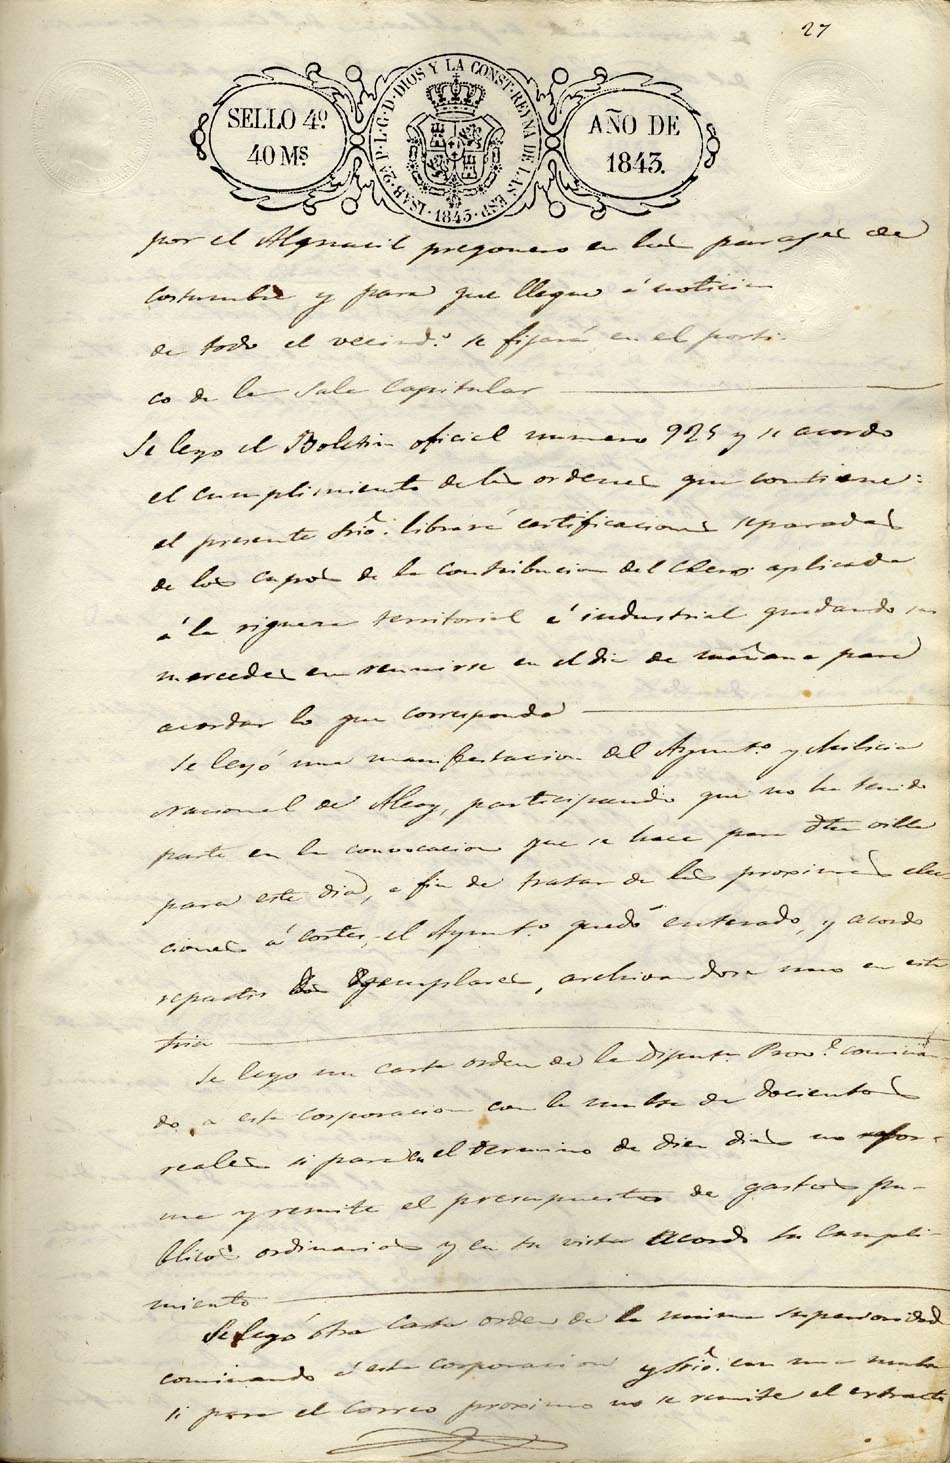 27
SELLO 4º
40 Mˢ
ISAB. 2ª P. L. G. D. DIOS Y LA CONST. REYNA DE LAS ESP. 1843.
AÑO DE
1843.
por el Alguacil pregonero en los parages de
costumbre y para que llegue á noticia
de todo el vecind.º se fijará en el porti-
co de la Sala Capitular
Se leyo el Boletin oficial numero 925 y se acordo
el cumplimiento de las ordenes que contiene:
el presente Srio. librará certificaciones separadas
de los cupos de la contribucion del Clero aplicada
á la riqueza territorial é industrial quedando sus
mercedes en reunirse en el dia de mañana para
acordar lo que corresponda
Se leyó una manifestacion del Ayunt.º y Milicia
Nacional de Alcoy, participando que no ha tenido
parte en la convocacion que se hace para dha villa
para este dia, a fin de tratar de las proximas elec-
ciones á cortes, el Ayunt.º quedó enterado, y acordo
repartir los egemplares, archivandose uno en esta
Sria
Se leyo una carta orden de la Diputn. Prov.l conminan
do a esta corporacion con la multa de docientos
reales si para en el termino de diez dias no refor-
ma y remite el presupuesto de gastos pu-
blicos ordinarios y en su vista acordo su cumpli-
miento
Se leyó otra carta orden de la misma superioridad
cominando á esta corporacion y Srio. con una multa
si para el correo proximo no se remite el estracto